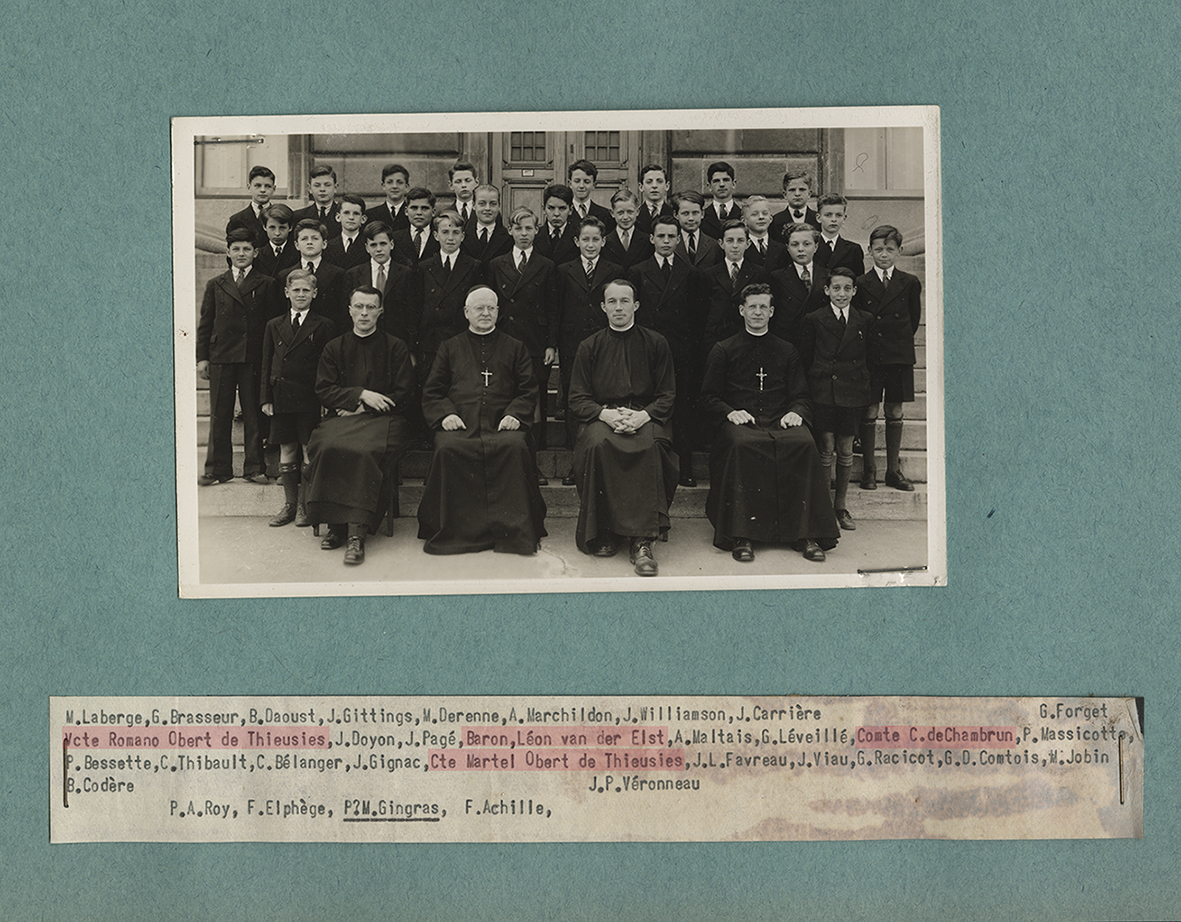 M.Laberge,G.Brasseur,B.Daoust,J.Gittings,M.Derenne,A.Marchildon,J.Williamson,J.Carrière G.Forget
Vcte Romano Obert de Thieusies,J.Doyon,J.Pagé,Baron,Léon van der Elst,A.Maltais,G.Léveillé,Comte C.deChambrun,P.Massicotte,
P.Bessette,C.Thibault,C.Bélanger,J.Gignac,Cte Martel Obert de Thieusies,J.L.Favreau,J.Viau,G.Racicot,G.D.Comtois,M.Jobin
B.Codère J.P.Véronneau
P.A.Roy, F.Elphège, P?M.Gingras, F.Achille,